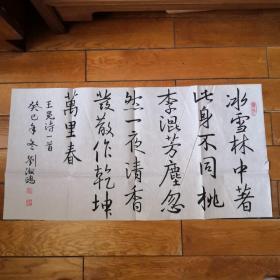 冰雪林中著
此身不同桃
李混芳塵忽
然一夜清香
發散作乾坤
萬里春
王冕诗一首
癸巳年冬劉淑鴻